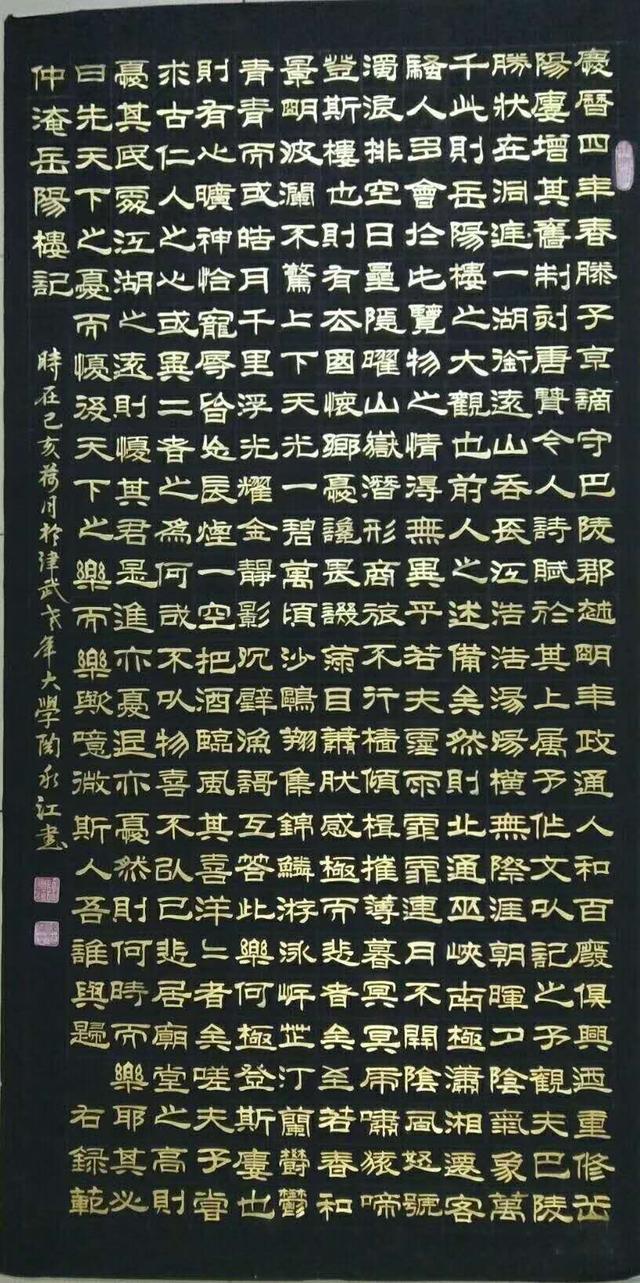 慶曆四年春滕子京謫守巴陵郡越明年政通人和百廢俱興迺重修岳
陽樓增其舊制刻唐賢今人詩賦於其上属予作文以記之予觀夫巴陵
勝狀在洞庭一湖銜遠山吞長江浩浩湯湯橫無際涯朝暉夕陰氣象萬
千此則岳陽樓之大觀也前人之述備矣然則北通巫峽南極瀟湘遷客
騷人多會於此覽物之情得無異乎若夫霪雨霏霏連月不開陰風怒號
濁浪排空日星隱曜山嶽潛形商旅不行檣傾楫摧薄暮冥冥虎嘯猿啼
登斯樓也則有去國懷鄉憂讒畏譏滿目蕭然感極而悲者矣至若春和
景明波瀾不驚上下天光一碧萬頃沙鷗翔集錦鱗游泳岸芷汀蘭鬱鬱
青青而或皓月千里浮光耀金靜影沉璧漁歌互答此樂何極登斯樓也
則有心曠神怡寵辱皆忘長煙一空把酒臨風其喜洋〻者矣嗟夫予嘗
求古仁人之心或異二者之為何哉不以物喜不以己悲居廟堂之高則
憂其民處江湖之遠則憂其君是進亦憂退亦憂然則何時而樂耶其必
曰先天下之憂而憂後天下之樂而樂歟噫微斯人吾誰與歸 右錄範
仲淹岳陽樓記 時在己亥荷月於津武老年大學永江書